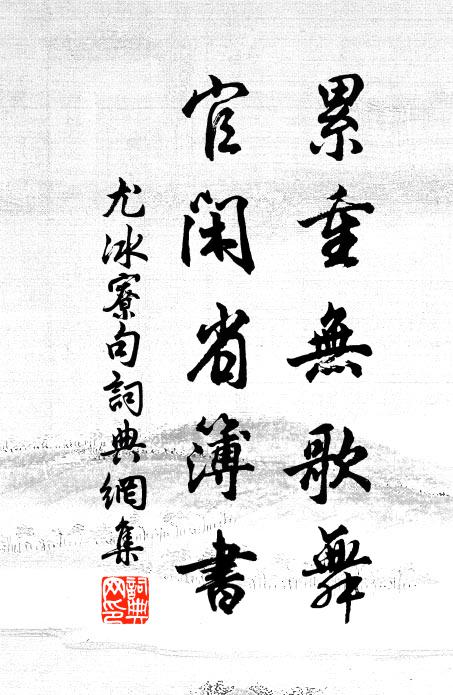 累重無歌舞
官閑省簿書
尤冰寮句詞典網集
詞典網印